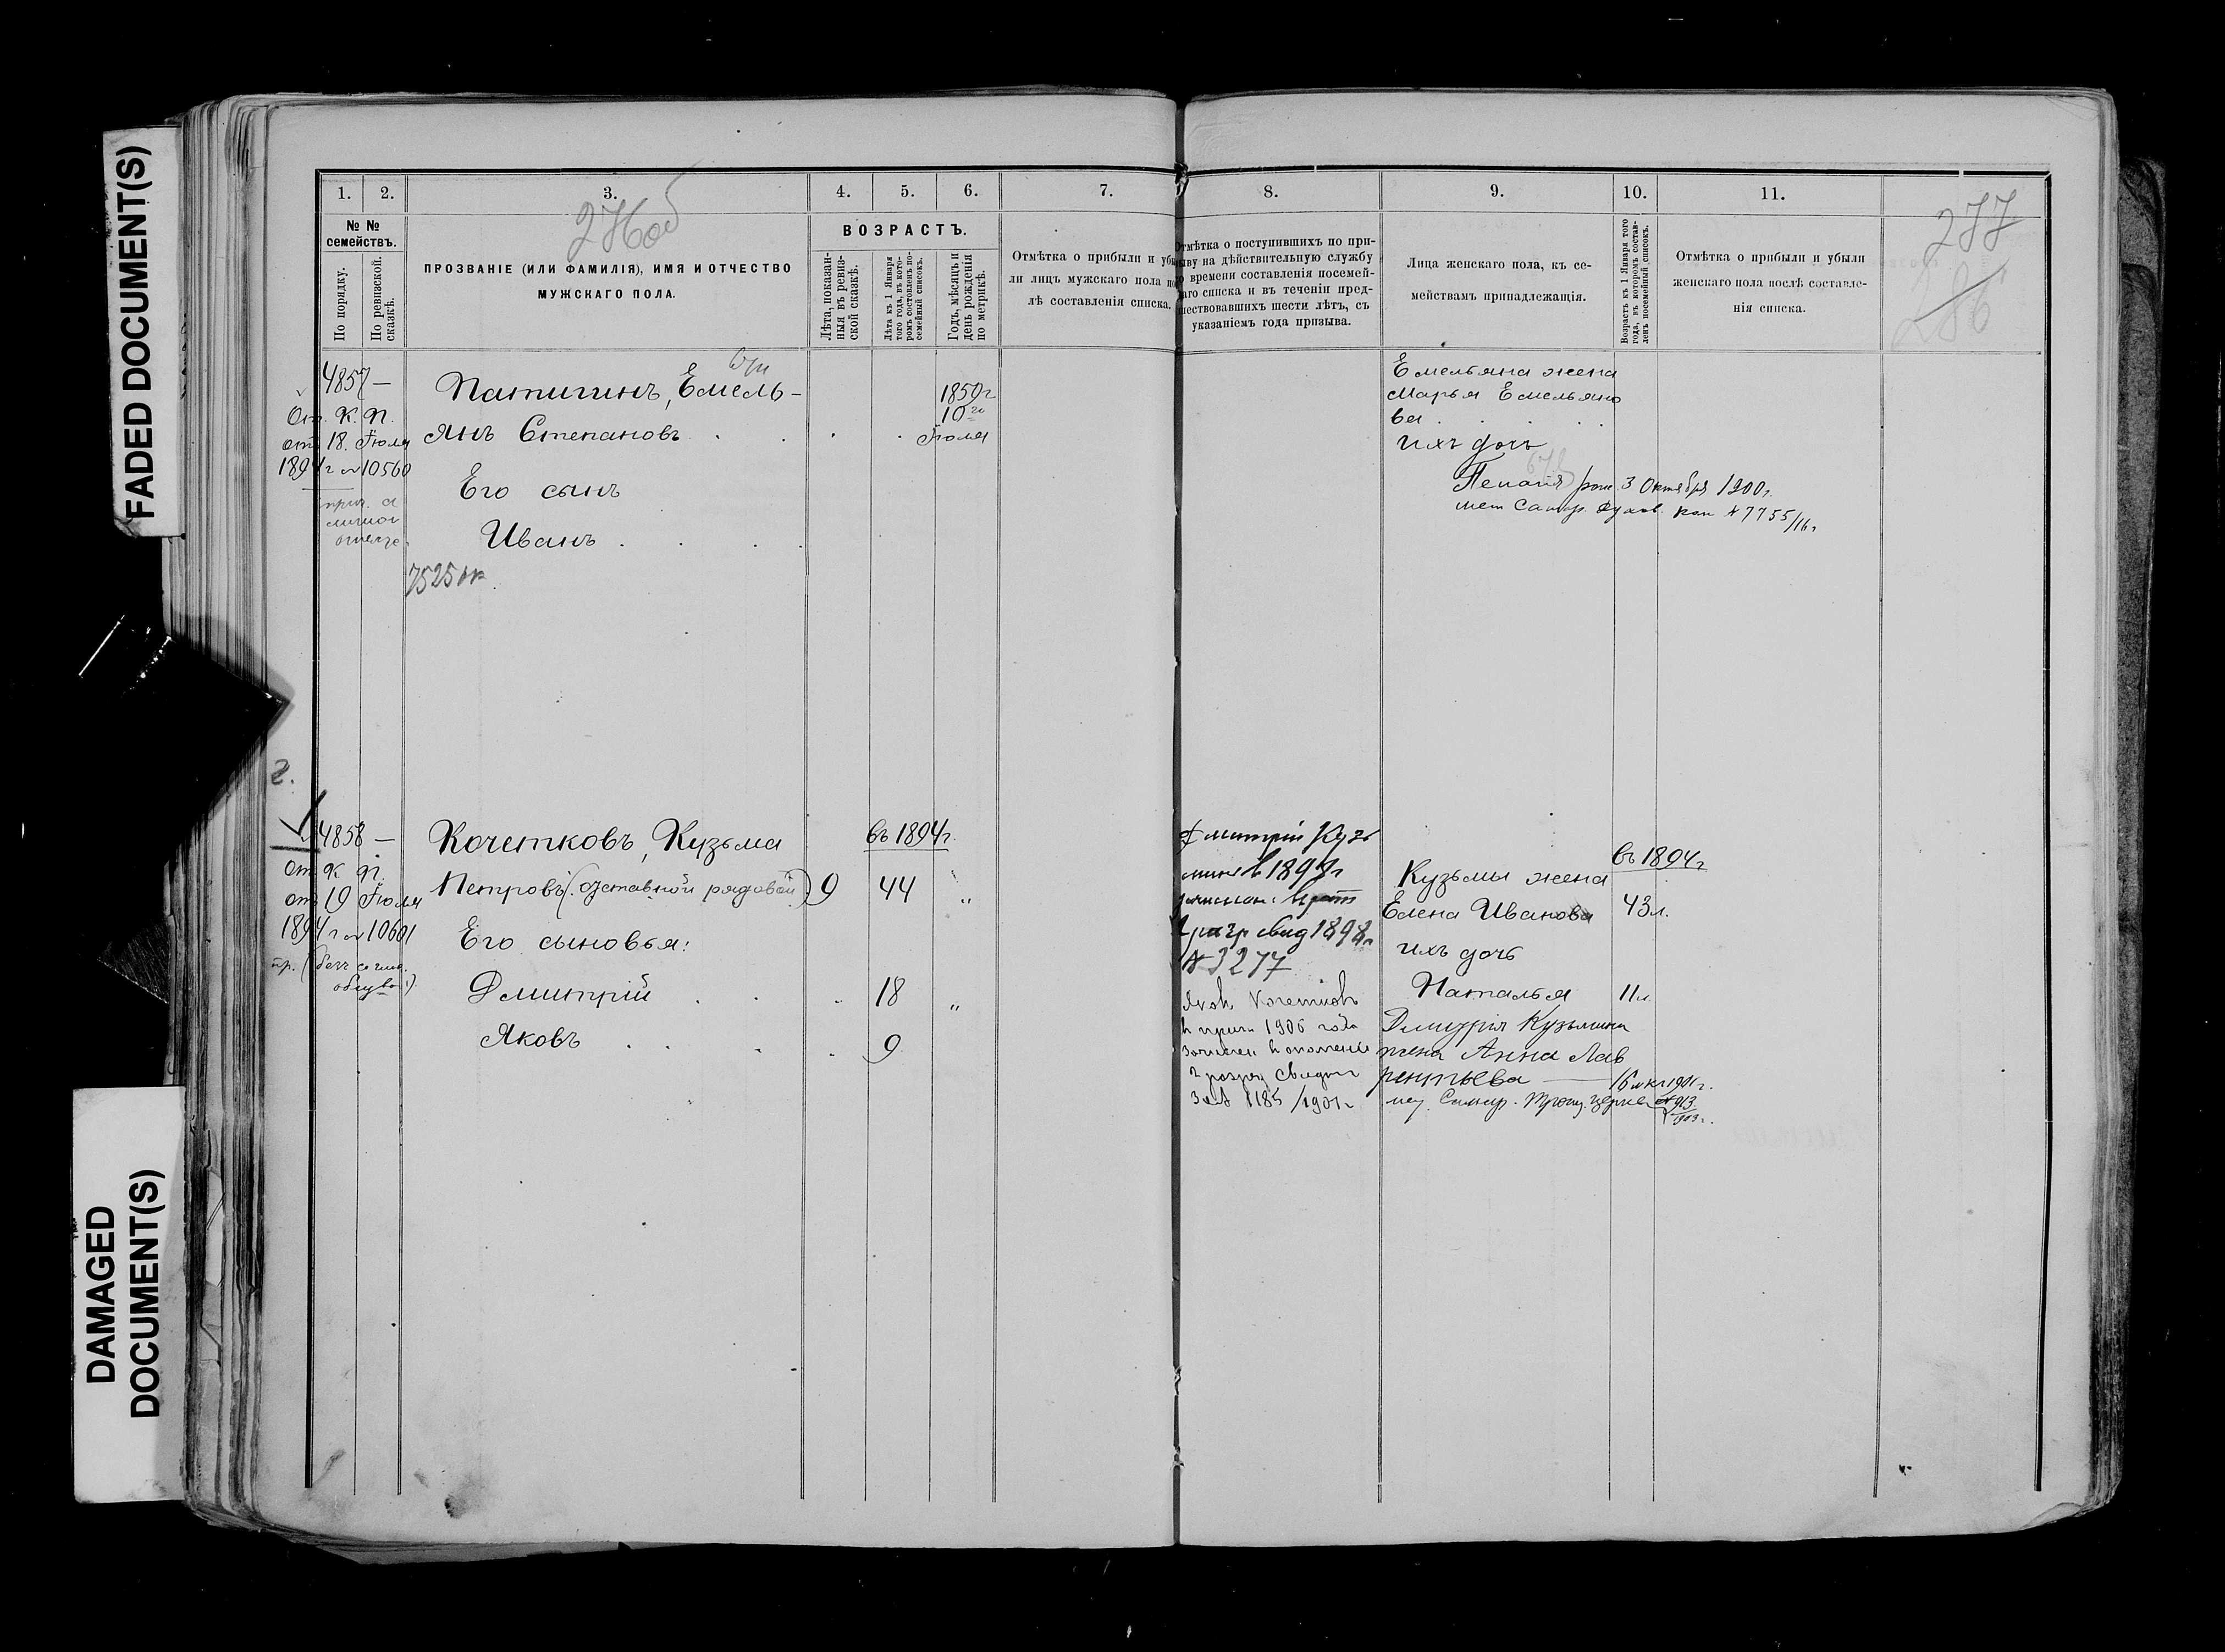 FADED DOCUMENT(S)
DAMAGED
DOCUMENT(S)
1. 2. 3. 4. 5. 6. 7. 8. 9. 10. 11.
276об
277
286
№ №
семействъ.
По порядку.
По ревизской
сказкѣ.
ПРОЗВАНІЕ (ИЛИ ФАМИЛІЯ), ИМЯ И ОТЧЕСТВО
МУЖСКАГО ПОЛА.
ВОЗРАСТЪ.
Лѣта, показан-
ныя въ ревиз-
ской сказкѣ.
Лѣта къ 1 Января
того года, въ кото-
ромъ составленъ по-
семейный списокъ.
Годъ, мѣсяцъ и
день рожденія
по метрикѣ.
Отмѣтка о прибыли и убы-
ли лицъ мужскаго пола по
лѣ составленія списка.
Отмѣтка о поступившихъ по при-
ыву на дѣйствительную службу
о времени составленія посемей-
аго списка и въ теченіи пред-
шествовавшихъ шести лѣтъ, съ
указаніемъ года призыва.
Лица женскаго пола, къ се-
мействамъ принадлежащія.
Возрастъ къ 1 Января того
года, въ которомъ состав-
ленъ посемейный списокъ.
Отмѣтка о прибыли и убыли
женскаго пола послѣ составле-
нія списка.
4857 —
От. К. П.
отъ 18 Іюля
1894 г № 10560
Патигинъ, Емель-
янъ Степановъ
1850 г
10 го
Іюля
Его сынъ
Иванъ
7525
Емельяна жена
Марья Емельяно
ва
ихъ дочь
3 Октября 1900 г.
мет Самар. духов. кон № 7755/16 г
2.
4858 —
от К П.
отъ 19 Іюля
1894 г № 10601
Кочетковъ, Кузьма
Петровъ (отставной рядовой) 9 44 "
въ 1894 г.
Его сыновья:
Дмитрій 18 "
Яковъ 9
Дмитрій Кузь
мин в 1897 г
свид 1898 г
№ 3277
Яков Кочетков
в приз 1906 года
зачислен в ополченіе
2 разряд свидет
за № 1185 /190
въ 1894 г
Кузьмы жена
Елена Иванова 43 л.
ихъ дочь
Наталья 11 л
Димитрія Кузьмина
жена Анна Лав
рентьева — 16
Самар. Троиц. церкв № 913